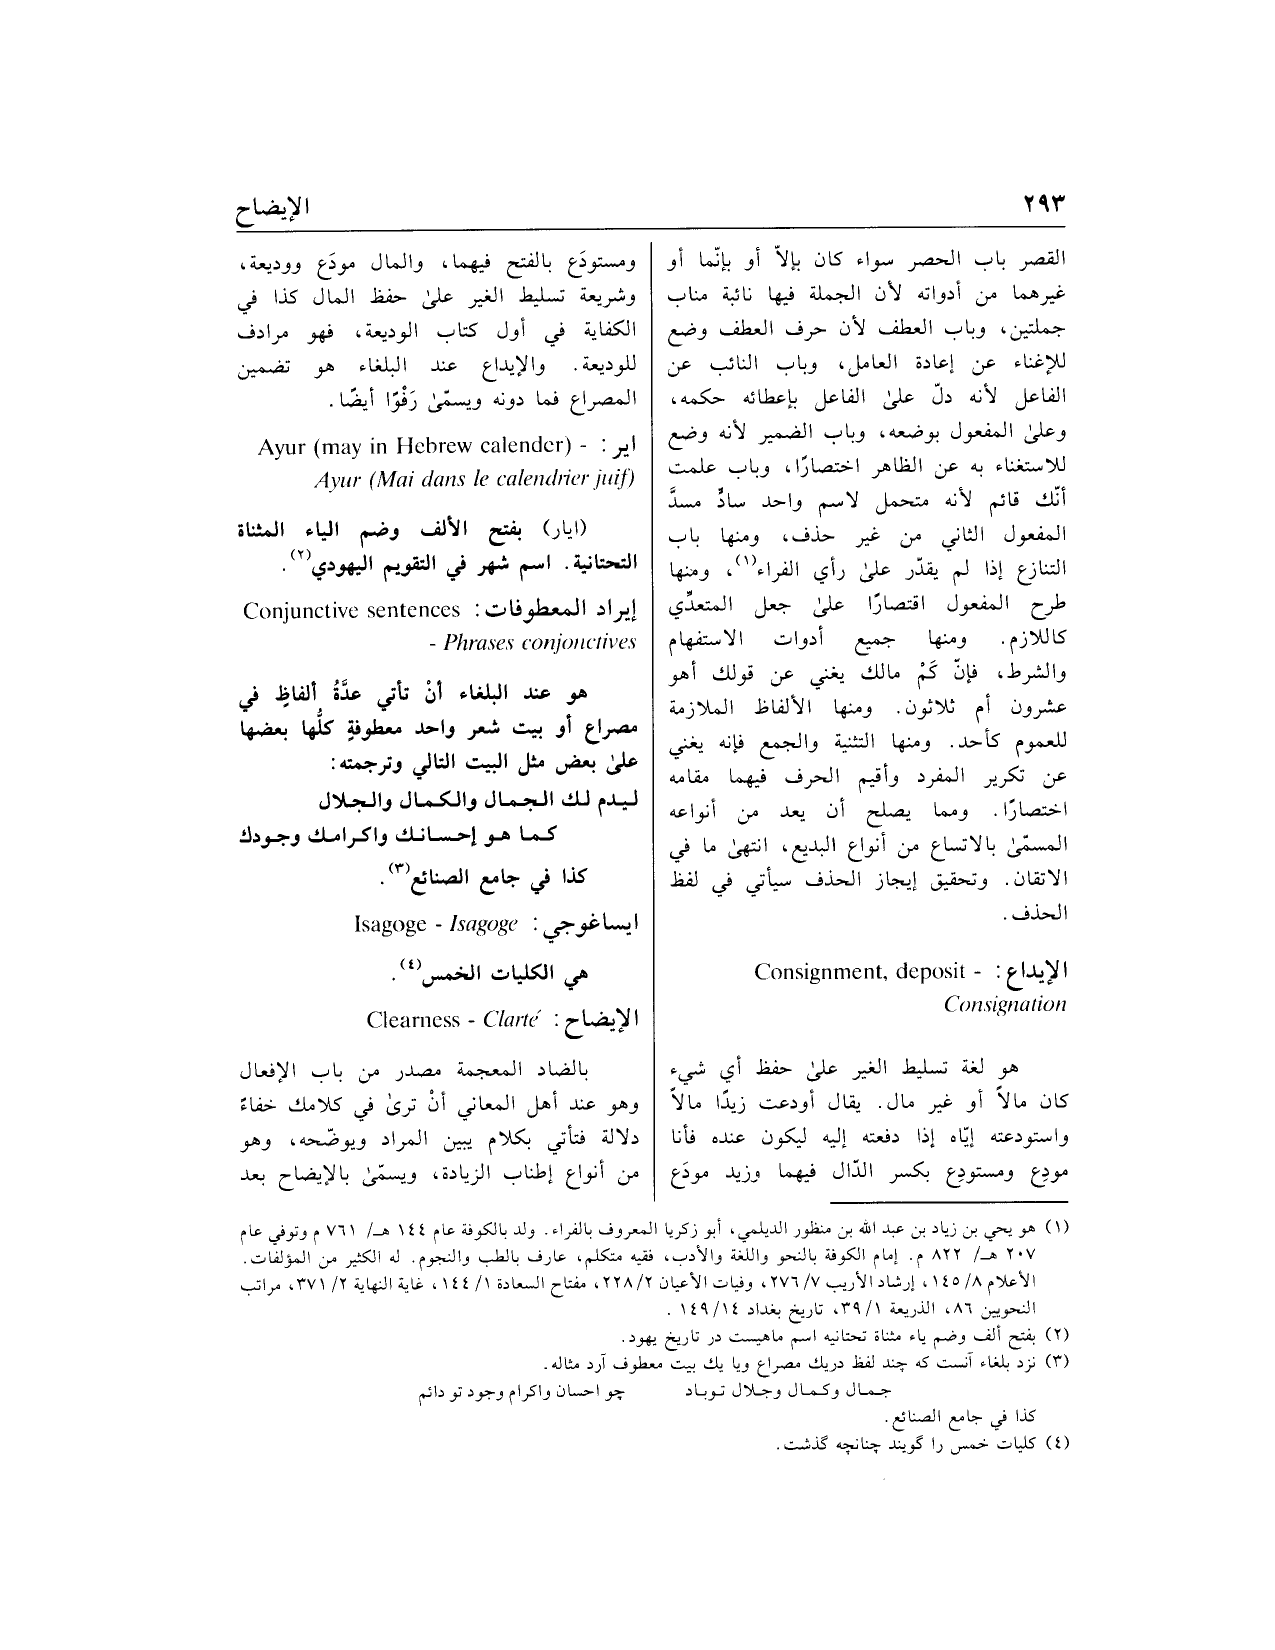 ٢٩٣
الإيضاح
القصر باب الحصر سواء كان بإلاّ أو بإنّما أو
غيرهما من أدواته لأن الجملة فيها نائبة مناب
جملتين، وباب العطف لأن حرف العطف وضع
للإغناء عن إعادة العامل، وباب النائب عن
الفاعل لأنه دلّ علىٰ الفاعل بإعطائه حكمه،
وعلىٰ المفعول بوضعه، وباب الضمير لأنه وضع
للاستغناء به عن الظاهر اختصارًا، وباب علمت
أنّك قائم لأنه متحمل لاسم واحد سادٌّ مسدَّ
المفعول الثاني من غير حذف، ومنها باب
التنازع إذا لم يقدّر علىٰ رأي الفراء(١)، ومنها
طرح المفعول اقتصارًا علىٰ جعل المتعدِّي
كاللازم. ومنها جميع أدوات الاستفهام
والشرط، فإنّ كَمْ مالك يغني عن قولك أهو
عشرون أم ثلاثون. ومنها الألفاظ الملازمة
للعموم كأحد. ومنها التثنية والجمع فإنه يغني
عن تكرير المفرد وأقيم الحرف فيهما مقامه
اختصارًا. ومما يصلح أن يعد من أنواعه
المسمّىٰ بالاتساع من أنواع البديع، انتهىٰ ما في
الاتقان. وتحقيق إيجاز الحذف سيأتي في لفظ
الحذف.
الإيداع: Consignment, deposit -
Consignation
هو لغة تسليط الغير علىٰ حفظ أي شيء
كان مالاً أو غير مال. يقال أودعت زيدًا مالاً
واستودعته إيّاه إذا دفعته إليه ليكون عنده فأنا
مودِع ومستودِع بكسر الدّال فيهما وزيد مودَع
ومستودَع بالفتح فيهما، والمال مودَع ووديعة،
وشريعة تسليط الغير علىٰ حفظ المال كذا في
الكفاية في أول كتاب الوديعة، فهو مرادف
للوديعة. والإيداع عند البلغاء هو تضمين
المصراع فما دونه ويسمّىٰ رَفْوًا أيضًا.
اير: Ayur (may in Hebrew calender) -
Ayur (Mai dans le calendrier juif)
(ايار) بفتح الألف وضم الياء المثناة
التحتانية. اسم شهر في التقويم اليهودي(٢).
إيراد المعطوفات: Conjunctive sentences
- Phrases conjonctives
هو عند البلغاء أنْ تأتي عدَّةُ ألفاظٍ في
مصراع أو بيت شعر واحد معطوفةٍ كلُّها بعضها
علىٰ بعض مثل البيت التالي وترجمته:
ليدم لك الجمال والكمال والجلال
كما هو إحسانك واكرامك وجودك
كذا في جامع الصنائع(٣).
ايساغوجي: Isagoge - Isagoge
هي الكليات الخمس(٤).
الإيضاح: Clearness - Clarté
بالضاد المعجمة مصدر من باب الإفعال
وهو عند أهل المعاني أنْ ترىٰ في كلامك خفاءً
دلالة فتأتي بكلام يبين المراد ويوضّحه، وهو
من أنواع إطناب الزيادة، ويسمّىٰ بالإيضاح بعد
(١) هو يحي بن زياد بن عبد الله بن منظور الديلمي، أبو زكريا المعروف بالفراء. ولد بالكوفة عام ١٤٤ هـ/ ٧٦١ م وتوفي عام
٢٠٧ هـ/ ٨٢٢ م. إمام الكوفة بالنحو واللغة والأدب، فقيه متكلم، عارف بالطب والنجوم. له الكثير من المؤلفات.
الأعلام ٨/ ١٤٥، إرشاد الأريب ٧/ ٢٧٦، وفيات الأعيان ٢/ ٢٢٨، مفتاح السعادة ١/ ١٤٤، غاية النهاية ٢/ ٣٧١، مراتب
النحويين ٨٦، الذريعة ١/ ٣٩، تاريخ بغداد ١٤/ ١٤٩.
(٢) بفتح ألف وضم ياء مثناة تحتانيه اسم ماهيست در تاريخ يهود.
(٣) نزد بلغاء آنست كه چند لفظ دريك مصراع ويا يك بيت معطوف آرد مثاله.
جمال وكمال وجلال توباد چو احسان واكرام وجود تو دائم
كذا في جامع الصنائع.
(٤) كليات خمس را گويند چنانچه گذشت.